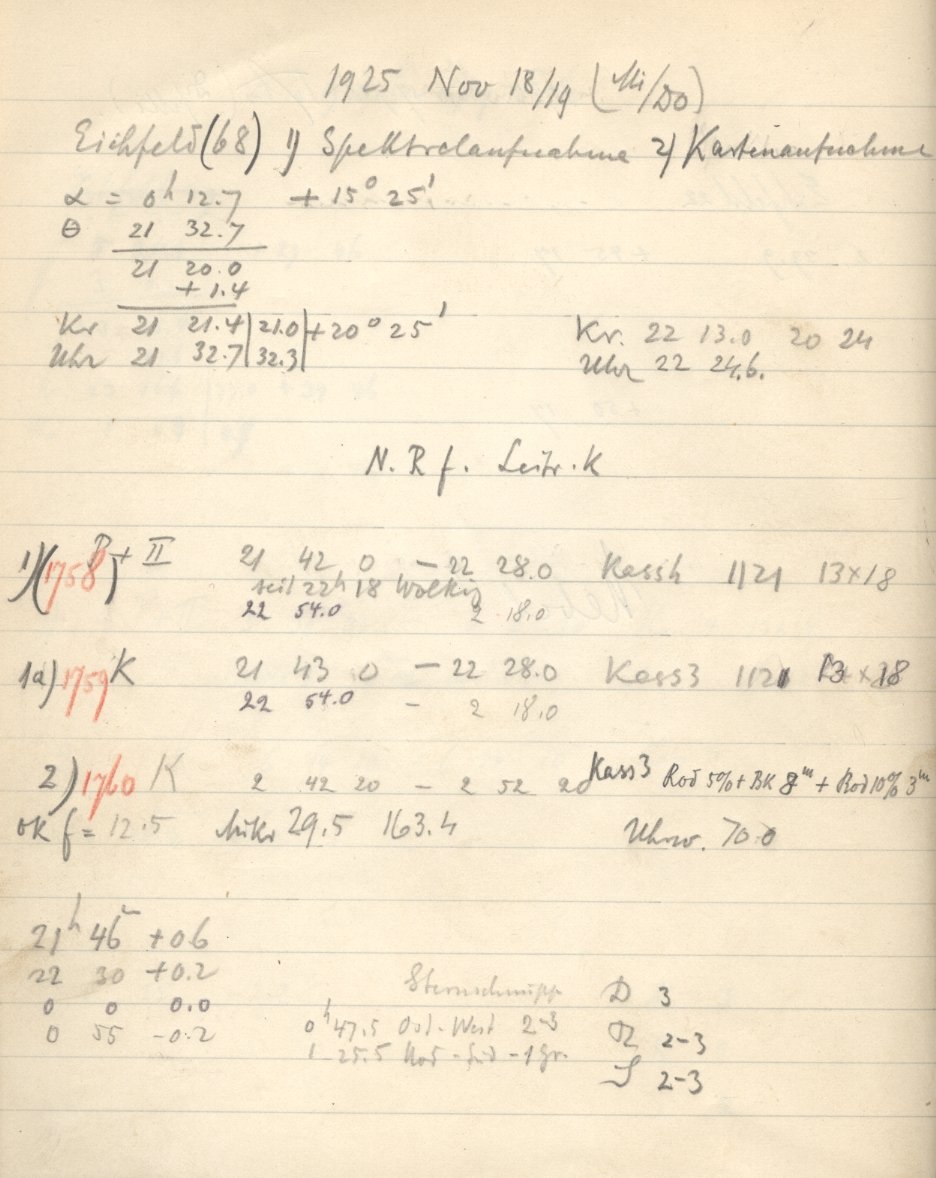 1925 Nov 18/19 (Mi/Do)
Eichfeld (68) 1) Spektralaufnahme 2) Kartenaufnahme
α = 0h 12.7 + 15° 25'
θ 21 32.7
21 20.0
+ 1.4
Kr 21 21.4 | 21.0 | + 20° 25' Kr. 22 13.0 20 24
Uhr 21 32.7 | 32.3 | Uhr 22 24.6.
N. R f. Leitr. K
1) (1758) P + II 21 42 0 – 22 28.0 Kassh 1121 13×18
seit 22h 18 Wolkig
22 54.0 2 18.0
1a) 1759 K 21 43 0 – 22 28.0 Kass3 1121 13×18
22 54.0 – 2 18.0
2) 1760 K 2 42 20 – 2 52 20 Kass3 Rod 5% + BK 8m + Rod 10% 3m
OK f = 12.5 Mikr 29.5 163.4 Uhrw. 70.0
21h 46 + 06
22 30 + 0.2
0 0 0.0
0 55 – 0.2
Sternschnupp
0h 47.5 Ost-West 2-3
1 25.5 Nord-Süd - 1 Gr.
D 3
R 2-3
S 2-3